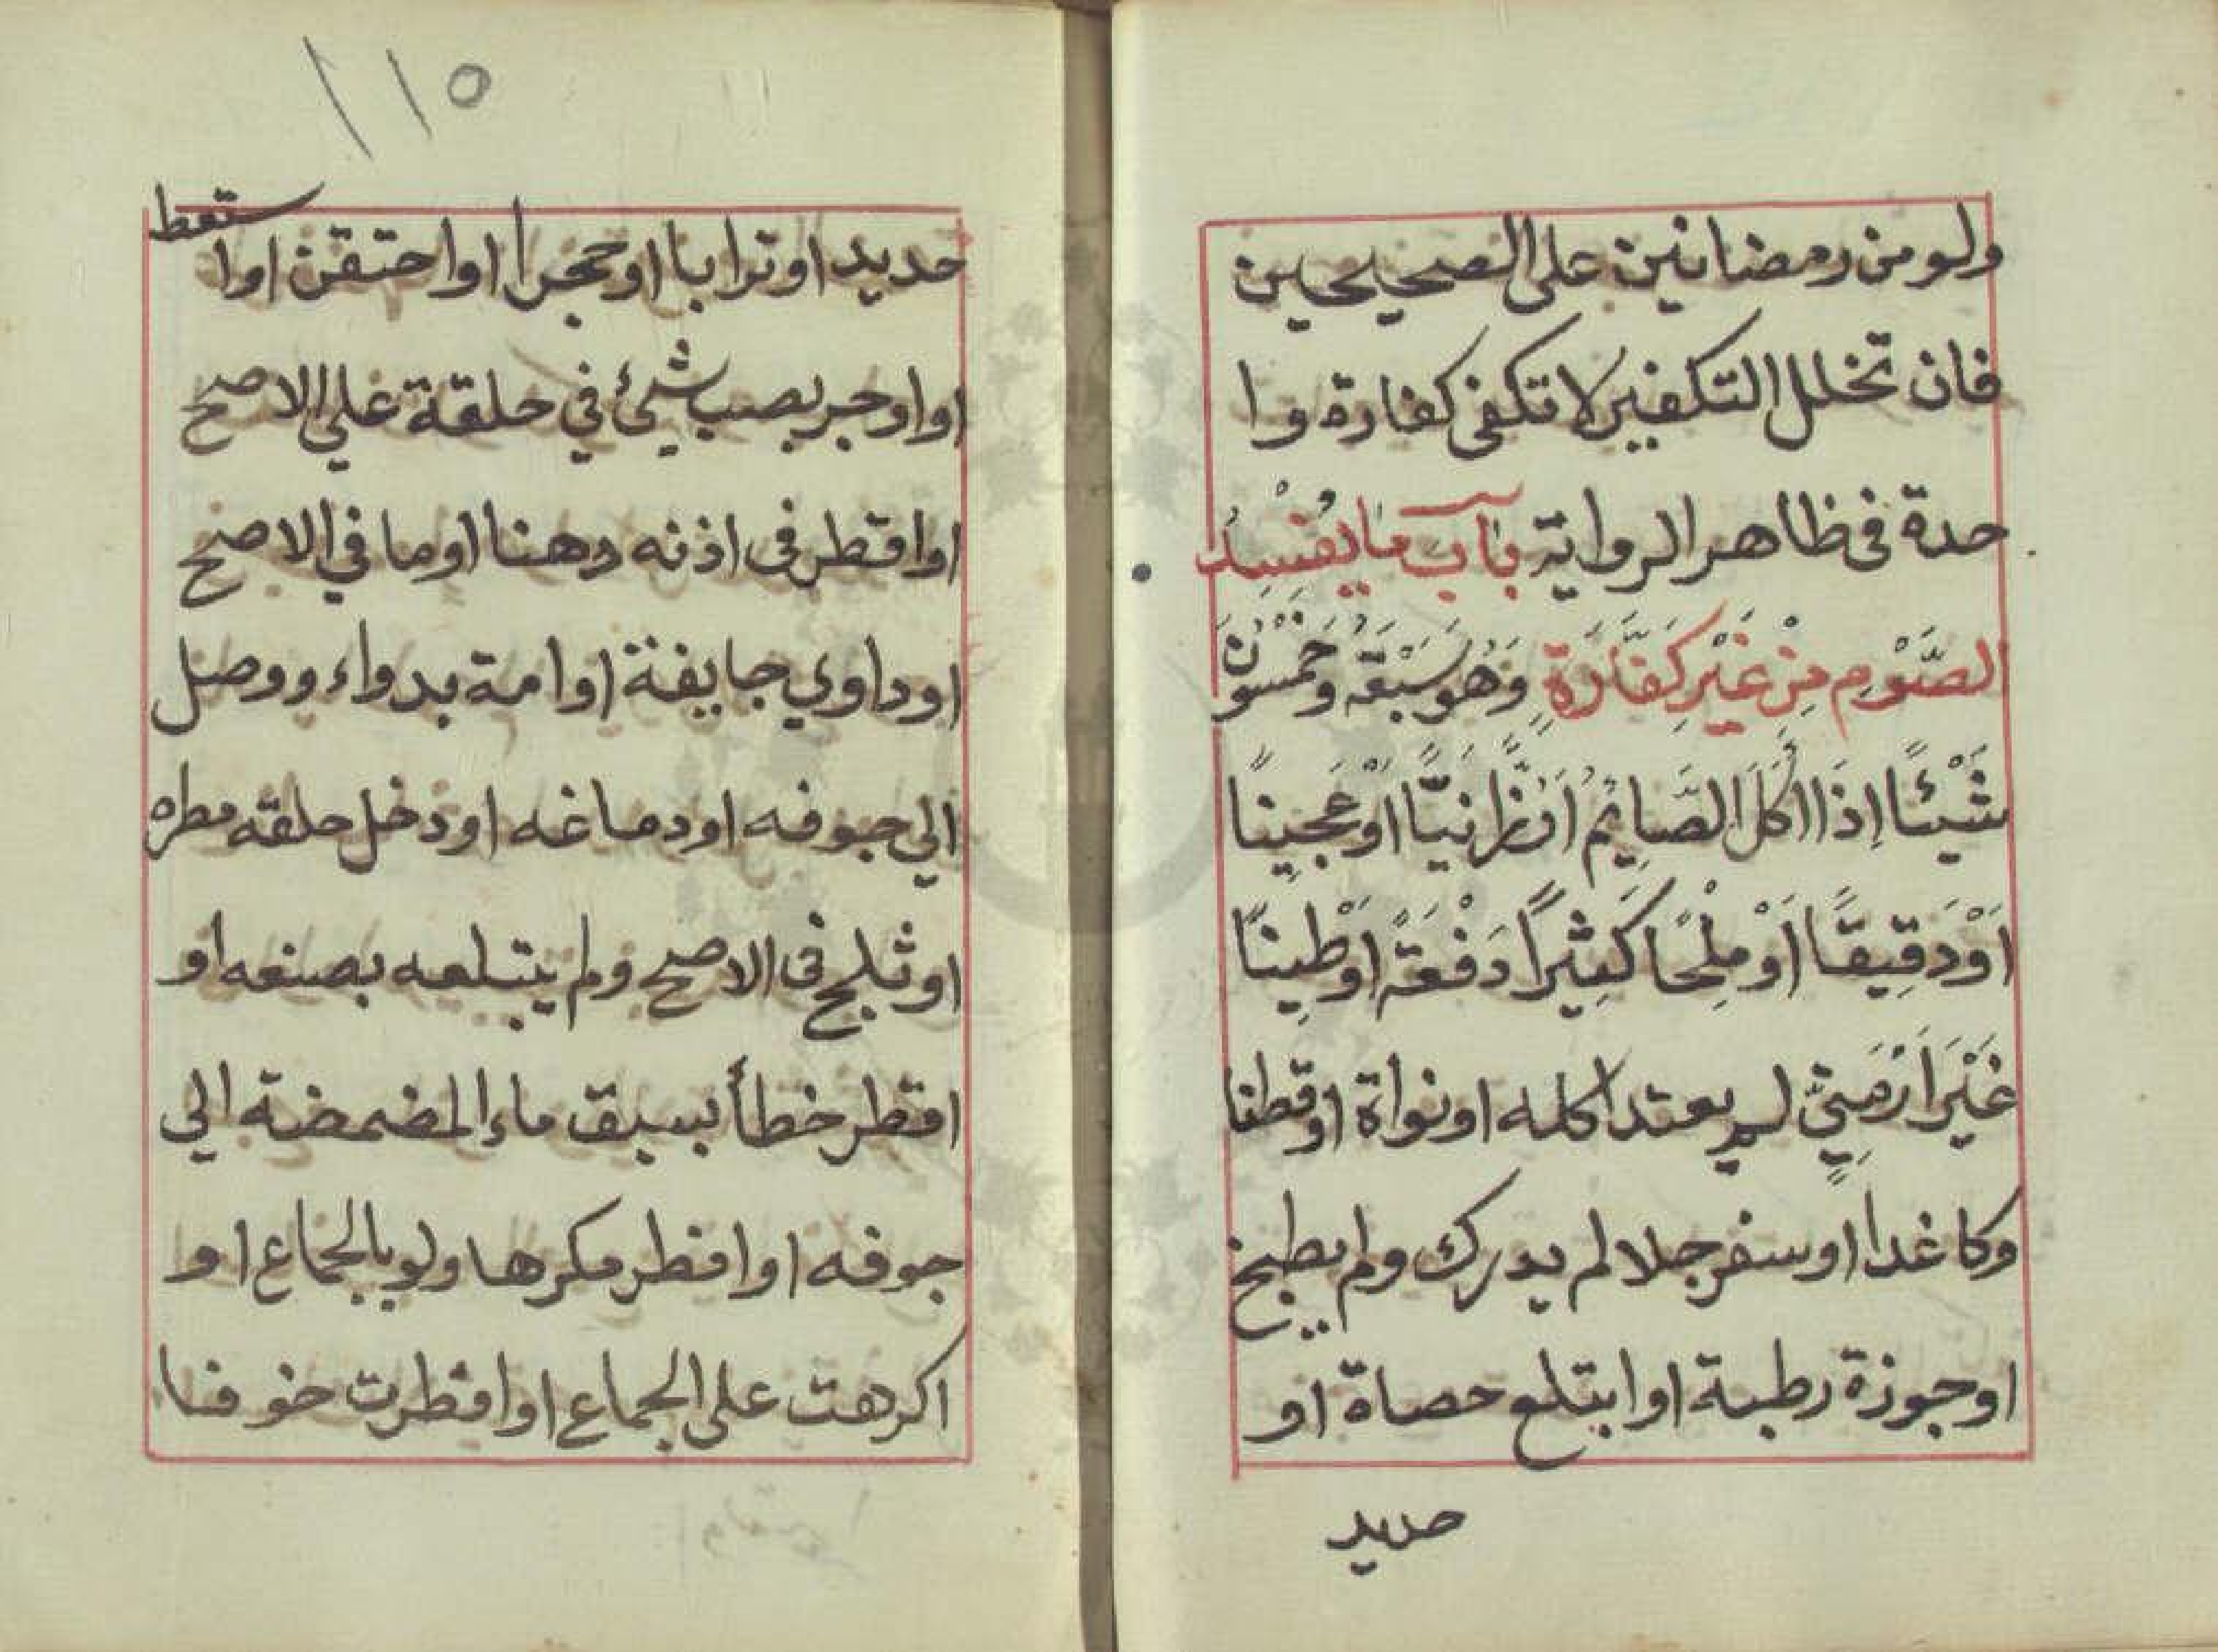 ولو من رمضانين على الصحيحين
فان تخلل التكفير لا تكفى كفارة وا
حدة فى ظاهر الرواية بَاب مَا يُفْسِدُ
الصَّوْمِ مِنْ غَيْرِ كَفَّارَةٍ وَهُوَ سَبْعَةُ وَخَمْسُونَ
شَيْئًا اِذَا اكَلَ الصَّايِمُ اَرُزًّا نَيًّا اَوْ عَجِينًا
اَوْ دَقِيقًا اَوْ مِلْحًا كَثِيرًا دَفْعَةً اَوْ طِينًا
غَيْرَ اَرْمَنِيٍّ لم يعتد اكله او نواة او قطنا
وكاغدا او سفرجلا لم يدرك ولم يطبخ
او جوزة رطبة او ابتلع حصاة او
حديد
١١٥
حديد او ترابا او حجرا او احتقن او ا
ستعط
او اوجر بصب شيئ في حلقة علي الاصح
او اقطر فى اذنه دهنا او ما في الاصح
او داوي جايفة او امة بدواء ووصل
الي جوفه او دماغه او دخل حلقه مطره
او ثلج فى الاصح ولم يبتلعه بصنعه او
افطر خطأ بسبق ماء المضمضة الي
جوفه او افطر مكرها ولو بالجماع او
اكرهت على الجماع او افطرت خوفا